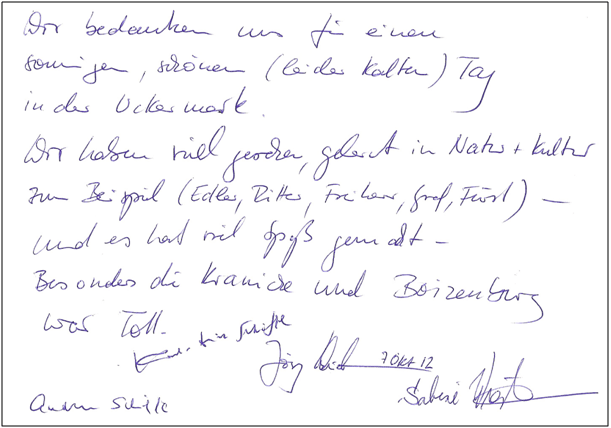 Wir bedanken uns für einen
sonnigen, schönen (leider kalten) Tag
in der Uckermark.
Wir haben viel gesehen, gelernt in Natur + Kultur
zum Beispiel (Edler, Ritter, Freiherr, Graf, Fürst) –
und es hat viel Spaß gemacht –
Besonders die Kraniche und Boizenburg
war Toll.
Jörg 7 Okt 12
Sabine